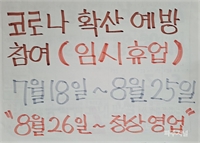 코로나 확산 예방
참여 (임시휴업)
7월 18일 ~ 8월 25일
"8월 26일 ~ 정상영업"